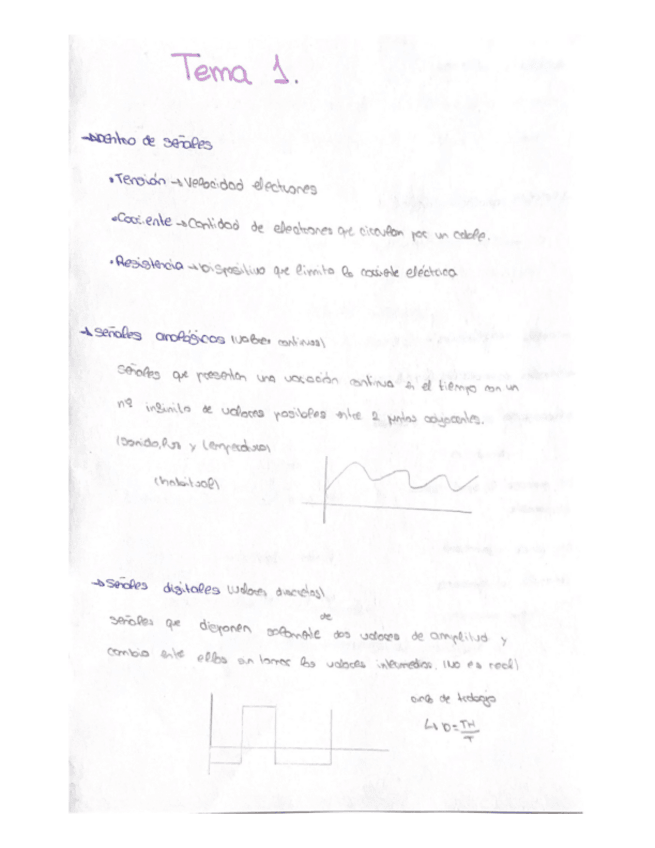 Tema 1.
→Dentro de señales
•Tensión → Velocidad electrones
•Corriente → Cantidad de electrones que circulan por un cable.
•Resistencia → Dispositivo que limita la corriente eléctrica
→ señales analógicas (valores continuos)
señales que presentan una variación continua en el tiempo con un
nº infinito de valores posibles entre 2 puntos adyacentes.
(sonido, luz y temperatura)
→ señales digitales (valores discretos)
de
señales que disponen solamente dos valores de amplitud y
cambia entre ellos sin tomar los valores intermedios. (No es real)
ciclo de trabajo
↳ D = TH/T